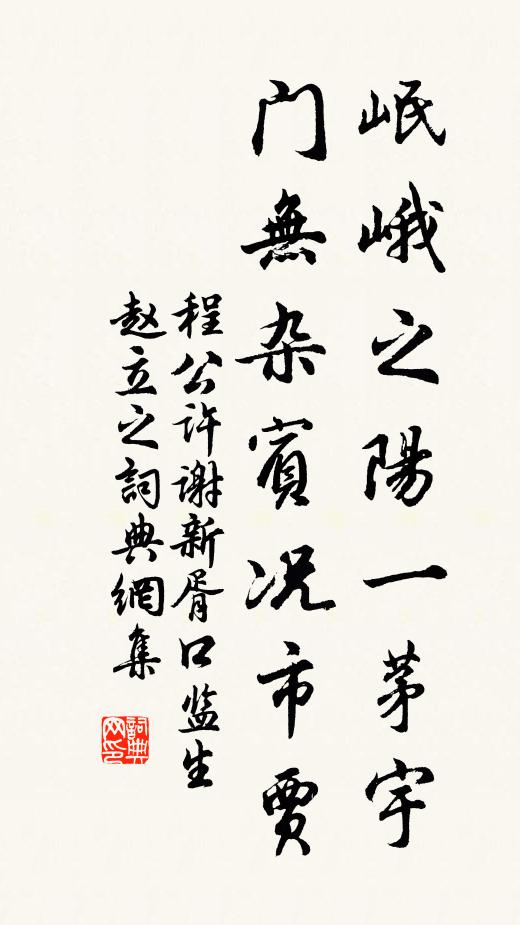 岷峨之陽一茅宇
門無杂賓况市賈
程公许謝新胥口监生
赵立之詞典網集
詞典网印